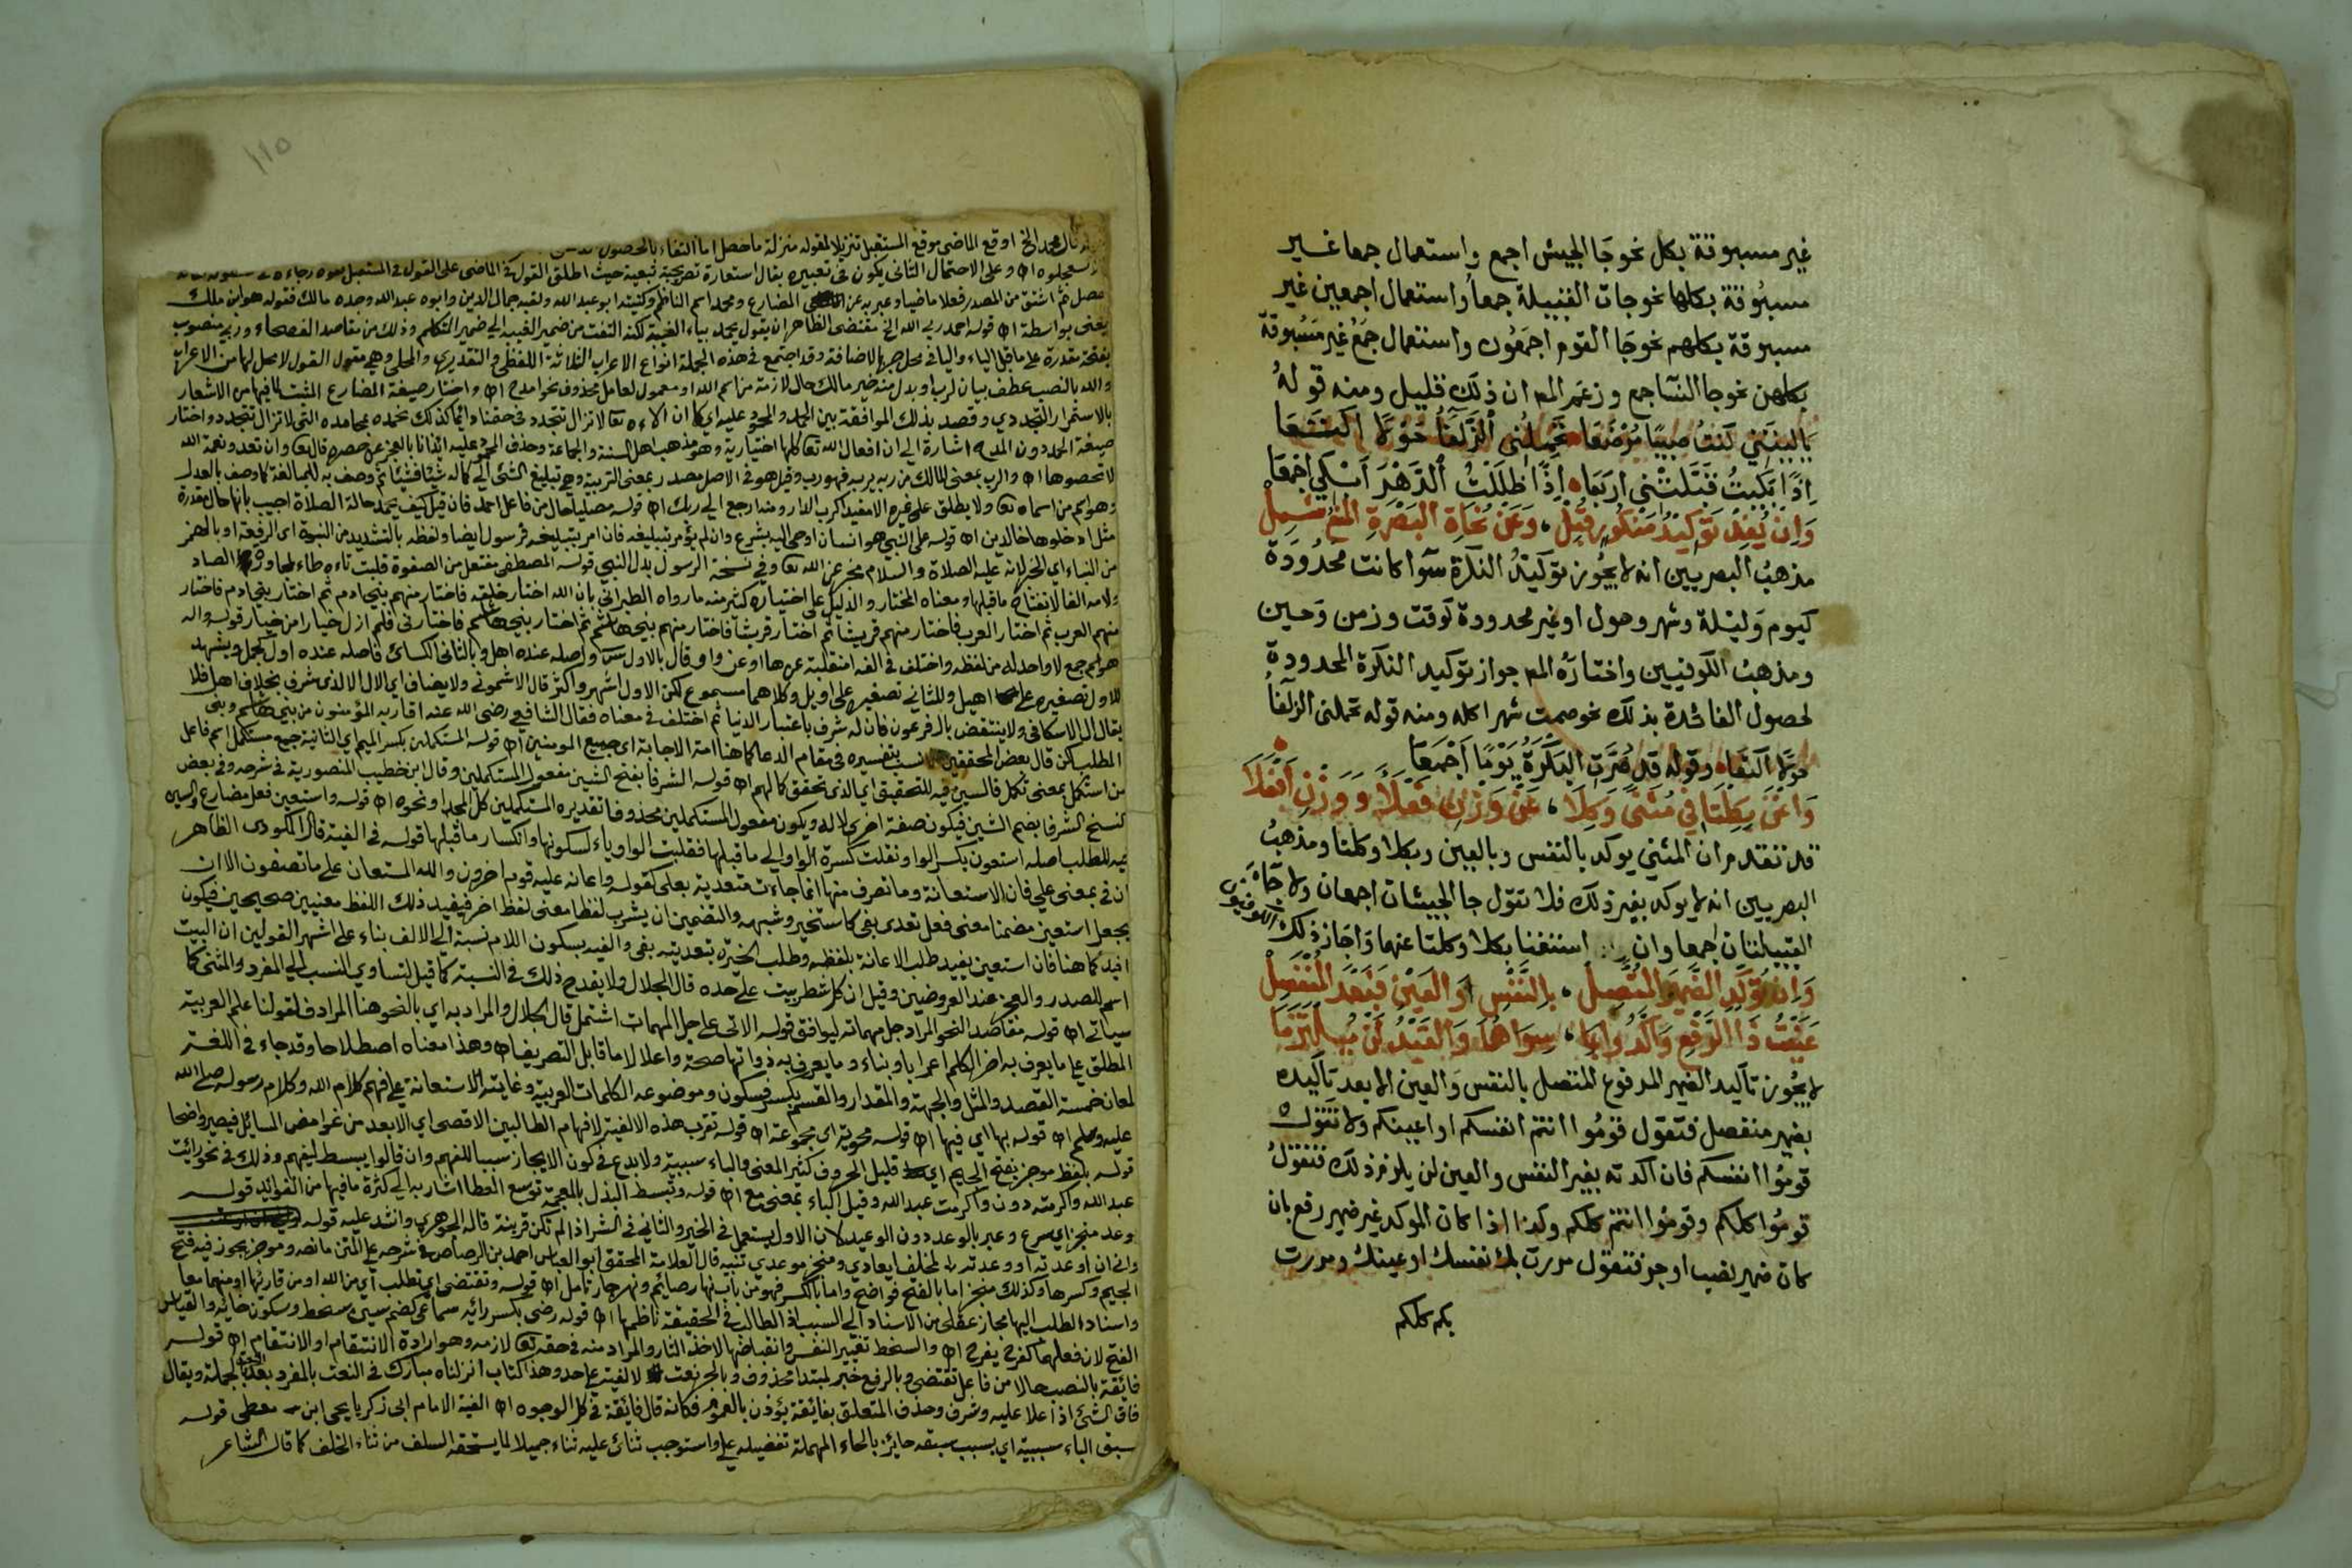 غير مسبوقة بكل نحو جا الجيش اجمع واستعمال جمعا غير
مسبوقة بكلها نحو جات القبيلة جمعا واستعمال اجمعين غير
مسبوقة بكلهم نحو جا القوم اجمعون واستعمال جمع غير مسبوقة
بكلهن نحو جا النسا جمع وزعم المص ان ذلك قليل ومنه قوله
ياليتني كنت صبيا مرضعا تحملني الزلفا حولا اكتعا
اذا بكيت قبلتني اربعا اذا ظللت الدهر ابكي اجمعا
وان يفد توكيد منكور قبل، وعن نحاة البصرة المنع شمل
مذهب البصريين انه لا يجوز توكيد النكرة سوا كانت محدودة
كيوم وليلة وشهر وحول او غير محدودة كوقت وزمن وحين
ومذهب الكوفيين واختاره المص جواز توكيد النكرة المحدودة
لحصول الفائدة بذلك نحو صمت شهرا كله ومنه قوله تحملني الزلفا
حولا اكتعا وقوله قد صرت البكرة يوما اجمعا
واغن بكلتا في مثنى وكلا، عن وزن فعلا ووزن افعلا
قد تقدم ان المثني يوكد بالنفس وبالعين وبكلا وكلتا ومذهب
البصريين انه لا يوكد بغير ذلك فلا تقول جا الجيشان اجمعان ولا جات
القبيلتان جمعاوان استغنا بكلا وكلتا عنهما واجاز ذلك الكوفيون
وان توكد الضمير المتصل، بالنفس او العين فبعد المنفصل
عنيت ذا الرفع واكدوا بما، سواهما والقيد لن يلتزما
لا يجوز تاكيد الضمير المرفوع المتصل بالنفس والعين الا بعد تاكيده
بضمير منفصل فتقول قوموا انتم انفسكم او اعينكم ولا تقول
قوموا انفسكم فان اكدته بغير النفس والعين لن يلزم ذلك فتقول
قوموا كلكم وقوموا انتم كلكم وكذا اذا كان الموكد غير ضمير رفع بان
كان ضمير نصب او جر فتقول مررت بك نفسك او عينك ومررت
بكم كلكم
١١٥
قال محمد الخ اوقع الماضي موقع المستقبل تنزيلا لمقوله منزلة ما حصل اما التفاء بالحصول
وعلى الاحتمال الثاني يكون في تعبيره بقال استعارة تصريحية تبعية حيث اطلق القول في الماضي على القول في المستقبل
ثم اشتق من المصدر فعلا ماضيا وعبر به عن المضارع ومحمد اسم الناظم وكنيته ابو عبد الله ولقبه جمال الدين وابوه عبد الله وجده مالك فقوله هو ابن مالك
يعني بواسطة اه قوله احمد ربي الله الخ مقتضى الظاهر ان يقول يحمد بياء الغيبة لكنه التفت من ضمير الغيبة الي ضمير المتكلم وذلك من مقاصد الفصحاء وربي منصوب
بفتحة مقدرة على ما قبل الياء والياء في محل جر بالاضافة وقد اجتمع في هذه الجملة انواع الاعراب الثلاثة اللفظي والتقديري والمحلي وهي مقول القول لا محل لها من الاعراب
والله بالنصب عطف بيان لرب او بدل منه خير مالك حال لازمة من اسم الله او معمول لعامل محذوف نحو امدح اه واختار صيغة المضارع المثبت لما فيها من الاشعار
بالاستمرار التجددي وقصد بذلك الموافقة بين الحمد والمحمود عليه اي كما ان الاءه تعا لا تزال تتجدد في حقنا دائما كذلك نحمده بمحامده التي لا تزال تتجدد واختار
صيغة الحمد دون المدح اشارة الي ان افعال الله تعا كلها اختيارية وهو مذهب اهل السنة والجماعة وحذف المحمود عليه ايذانا بالعجز عن حصره قال تعا وان تعدوا نعمة الله
لا تحصوها اه والرب بمعنى المالك من ربه يربه فهو رب وقيل هو في الاصل مصدر بمعنى التربية وهي تبليغ الشئ الي كماله شيئا فشيئا ثم وصف به للمبالغة كما وصف بالعدل
وهو اسم من اسماه تعا ولا يطلق على غيره الا مقيدا كرب الدار ومنه ارجع الي ربك اه قوله مصليا حال من فاعل احمد فان قيل كيف يحمد حالة الصلاة اجيب بانها حال مقدرة
مثل ادخلوها خالدين اه قوله على النبي هو انسان اوحي اليه بشرع وان لم يؤمر بتبليغه فان امر بتبليغه فرسول ايضا ولفظه بالتشديد من النبوة اي الرفعة او بالهمز
من النباء اي الخبر لانه عليه الصلاة والسلام مخبر عن الله تعا وفي نسخة الرسول بدل النبي قوله المصطفى مفتعل من الصفوة قلبت تاءه طاء لمجاورة الصاد
ولامه الفا لانفتاح ما قبلها ومعناه المختار والدليل على اختياره كثير منه ما رواه الطبراني بان الله اختار خلقه فاختار منهم بني ادم ثم اختار بني ادم فاختار
منهم العرب ثم اختار العرب فاختار منهم قريشا ثم اختار قريشا فاختار منهم بني هاشم ثم اختار بني هاشم فاختارني فلم ازل خيارا من خيار قوله واله
هو اسم جمع لا واحد له من لفظه واختلف في الفه امنقلبة عن ها او عن واو قال بالاول س واصله عنده اهل وبالثاني الكسائ فاصله عنده اول كجمل ويشهد
للاول تصغيره على اهيل وللثاني تصغيره على اويل وكلاهما مسموع لكن الاول اشهر واكثر قال الاشموني ولا يضاف اي الال الا لذي شرف بخلاف اهل فلا
يقال ال الاسكافي ولا ينتقض بال فرعون فان له شرف باعتبار الدنيا ثم اختلف في معناه فقال الشافعي رضى الله عنه اقاربه المؤمنون من بني هاشم وبني
المطلب لكن قال بعض المحققين الانسب بتفسيره في مقام الدعا كما هنا امة الاجابة اي جميع المومنين اه قوله المستكملين بكسر الميم اي الثانية جمع مستكمل اسم فاعل
من استكمل بمعنى تكمل فالسين فيه للتحقيق اي الذي تحقق كمالهم اه قوله الشرفا بفتح الشين مفعول المستكملين وقال ابن خطيب المنصورية في شرحه وفي بعض
نسخ الشرفا بضم الشين فيكون صفة اخرى لاله ويكون مفعول المستكملين محذوفا تقديره المستكملين كل المجد او نحوه اه قوله واستعين فعل مضارع والسين
فيه للطلب اصله استعون بكسر الواو نقلت كسرة الواو الي ما قبلها فقلبت الواو ياء لسكونها وانكسار ما قبلها قوله في الفية قال المكودى الظاهر
ان في بمعنى علي فان الاستعانة وما تصرف منها انما جاءت متعدية بعلى كقوله واعانه عليه قوم اخرون والله المستعان على ما تصفون الا ان
يجعل استعين مضمنا معنى فعل تعدى بفي كاستخير وشبهه والتضمين ان يشرب لفظا معنى لفظ اخر فيفيد ذلك اللفظ معنيين صحيحين فيكون
افيد كما هنا فان استعين يفيد طلب الاعانة بلفظه وطلب الخيرة بتعديته بفي والفيه بسكون اللام نسبة الي الالف بناء على اشهر القولين ان البيت
اسم للصدر والعجز عند العروضيين وقيل ان كل شطر بيت على حده قال الجلال ولا يقدح ذلك في النسبة كما قيل لتساوي النسب الي المفرد والمثنى كما
سياتي اه قوله مقاصد النحو المراد جل مهماته ليوافق قوله الاتي على جل المهمات اشتمل قال الجلال والمراد به اي بالنحو هنا المرادف لقولنا علم العربية
المطلق على ما يعرف به اخر الكلم اعرابا وبناء وما يعرف به ذواتها صحة واعلالا لا ما قابل التصريف اه وهذا معناه اصطلاحا وقد جاء في اللغة
لمعان خمسة القصد والمثل والجهة والمقدار والقسم بكسر فسكون وموضوعه الكلمات العربية وغايته الاستعانة على فهم كلام الله وكلام رسوله صلى الله
عليه وسلم اه قوله بها اي فيها اه قوله محوية اي مجموعة اه قوله تقرب هذه الالفية لافهام الطالبين الاقصى اي الابعد من غوامض المسائل فيصير واضحا
قوله بلفظ موجز بفتح الجيم اي قليل الحروف كثير المعنى والباء سببية ولا بدع في كون الايجاز سببا للفهم وان قالوا يبسط ليفهم وذلك في نحو رائت
عبد الله واكرمته دون واكرمت عبد الله وقيل الباء بمعنى مع اه قوله وتبسط البذل بالمعجمة توسع العطا اشار به الي كثرة ما فيها من الفوائد قوله
وعد منجز اي سرع وعبر بالوعد دون الوعيد لان الاول يستعمل في الخير والثاني في الشر اذا لم تكن قرينة قاله الجوهري وانشد عليه قوله
واني ان اوعدته او وعدته لمخلف ايعادي ومنجز موعدي تنبيه قال العلامة المحقق ابو العباس احمد بن الرصاص في شرحه على المتن ما نصه وموجز يجوز فيه فتح
الجيم وكسرها وكذلك منجز اما بالفتح فواضح واما بالكسر فهو من باب نهاره صايم ونهر جار تامل اه قوله وتقتضي اي تطلب اي من الله او من قارئها او منهما معا
واسناد الطلب اليها مجاز عقلي من الاسناد الي السبب اذ الطالب في الحقيقة ناظمها اه قوله رضى بكسر رائه سماعي كضم سين سخط وسكون خائه والقياس
الفتح لان فعلهما كفرح يفرح اه والسخط تغيير النفس وانقباضها لاخذ الثار والمراد منه في حقه تعا لازمه وهو ارادة الانتقام او الانتقام اه قوله
فائقة بالنصب حالا من فاعل تقتضي وبالرفع خبر لمبتدا محذوف وبالجر نعت لالفية على حد وهذا كتاب انزلناه مبارك في النعت بالمفرد بعد النعت بالجملة ويقال
فاق الشئ اذا علا عليه وشرف وحذف المتعلق بفائقة يؤذن بالعموم فكانه قال فائقة في كل الوجوه اه الفية الامام ابي زكريا يحى ابن معطى قوله
سبق الباء سببية اي بسبب سبقه حايز بالحاء المهملة تفضيله علي واستوجب ثنائ عليه ثناء جميلا لما يستحقه السلف من ثناء الخلف كما قال الشاعر